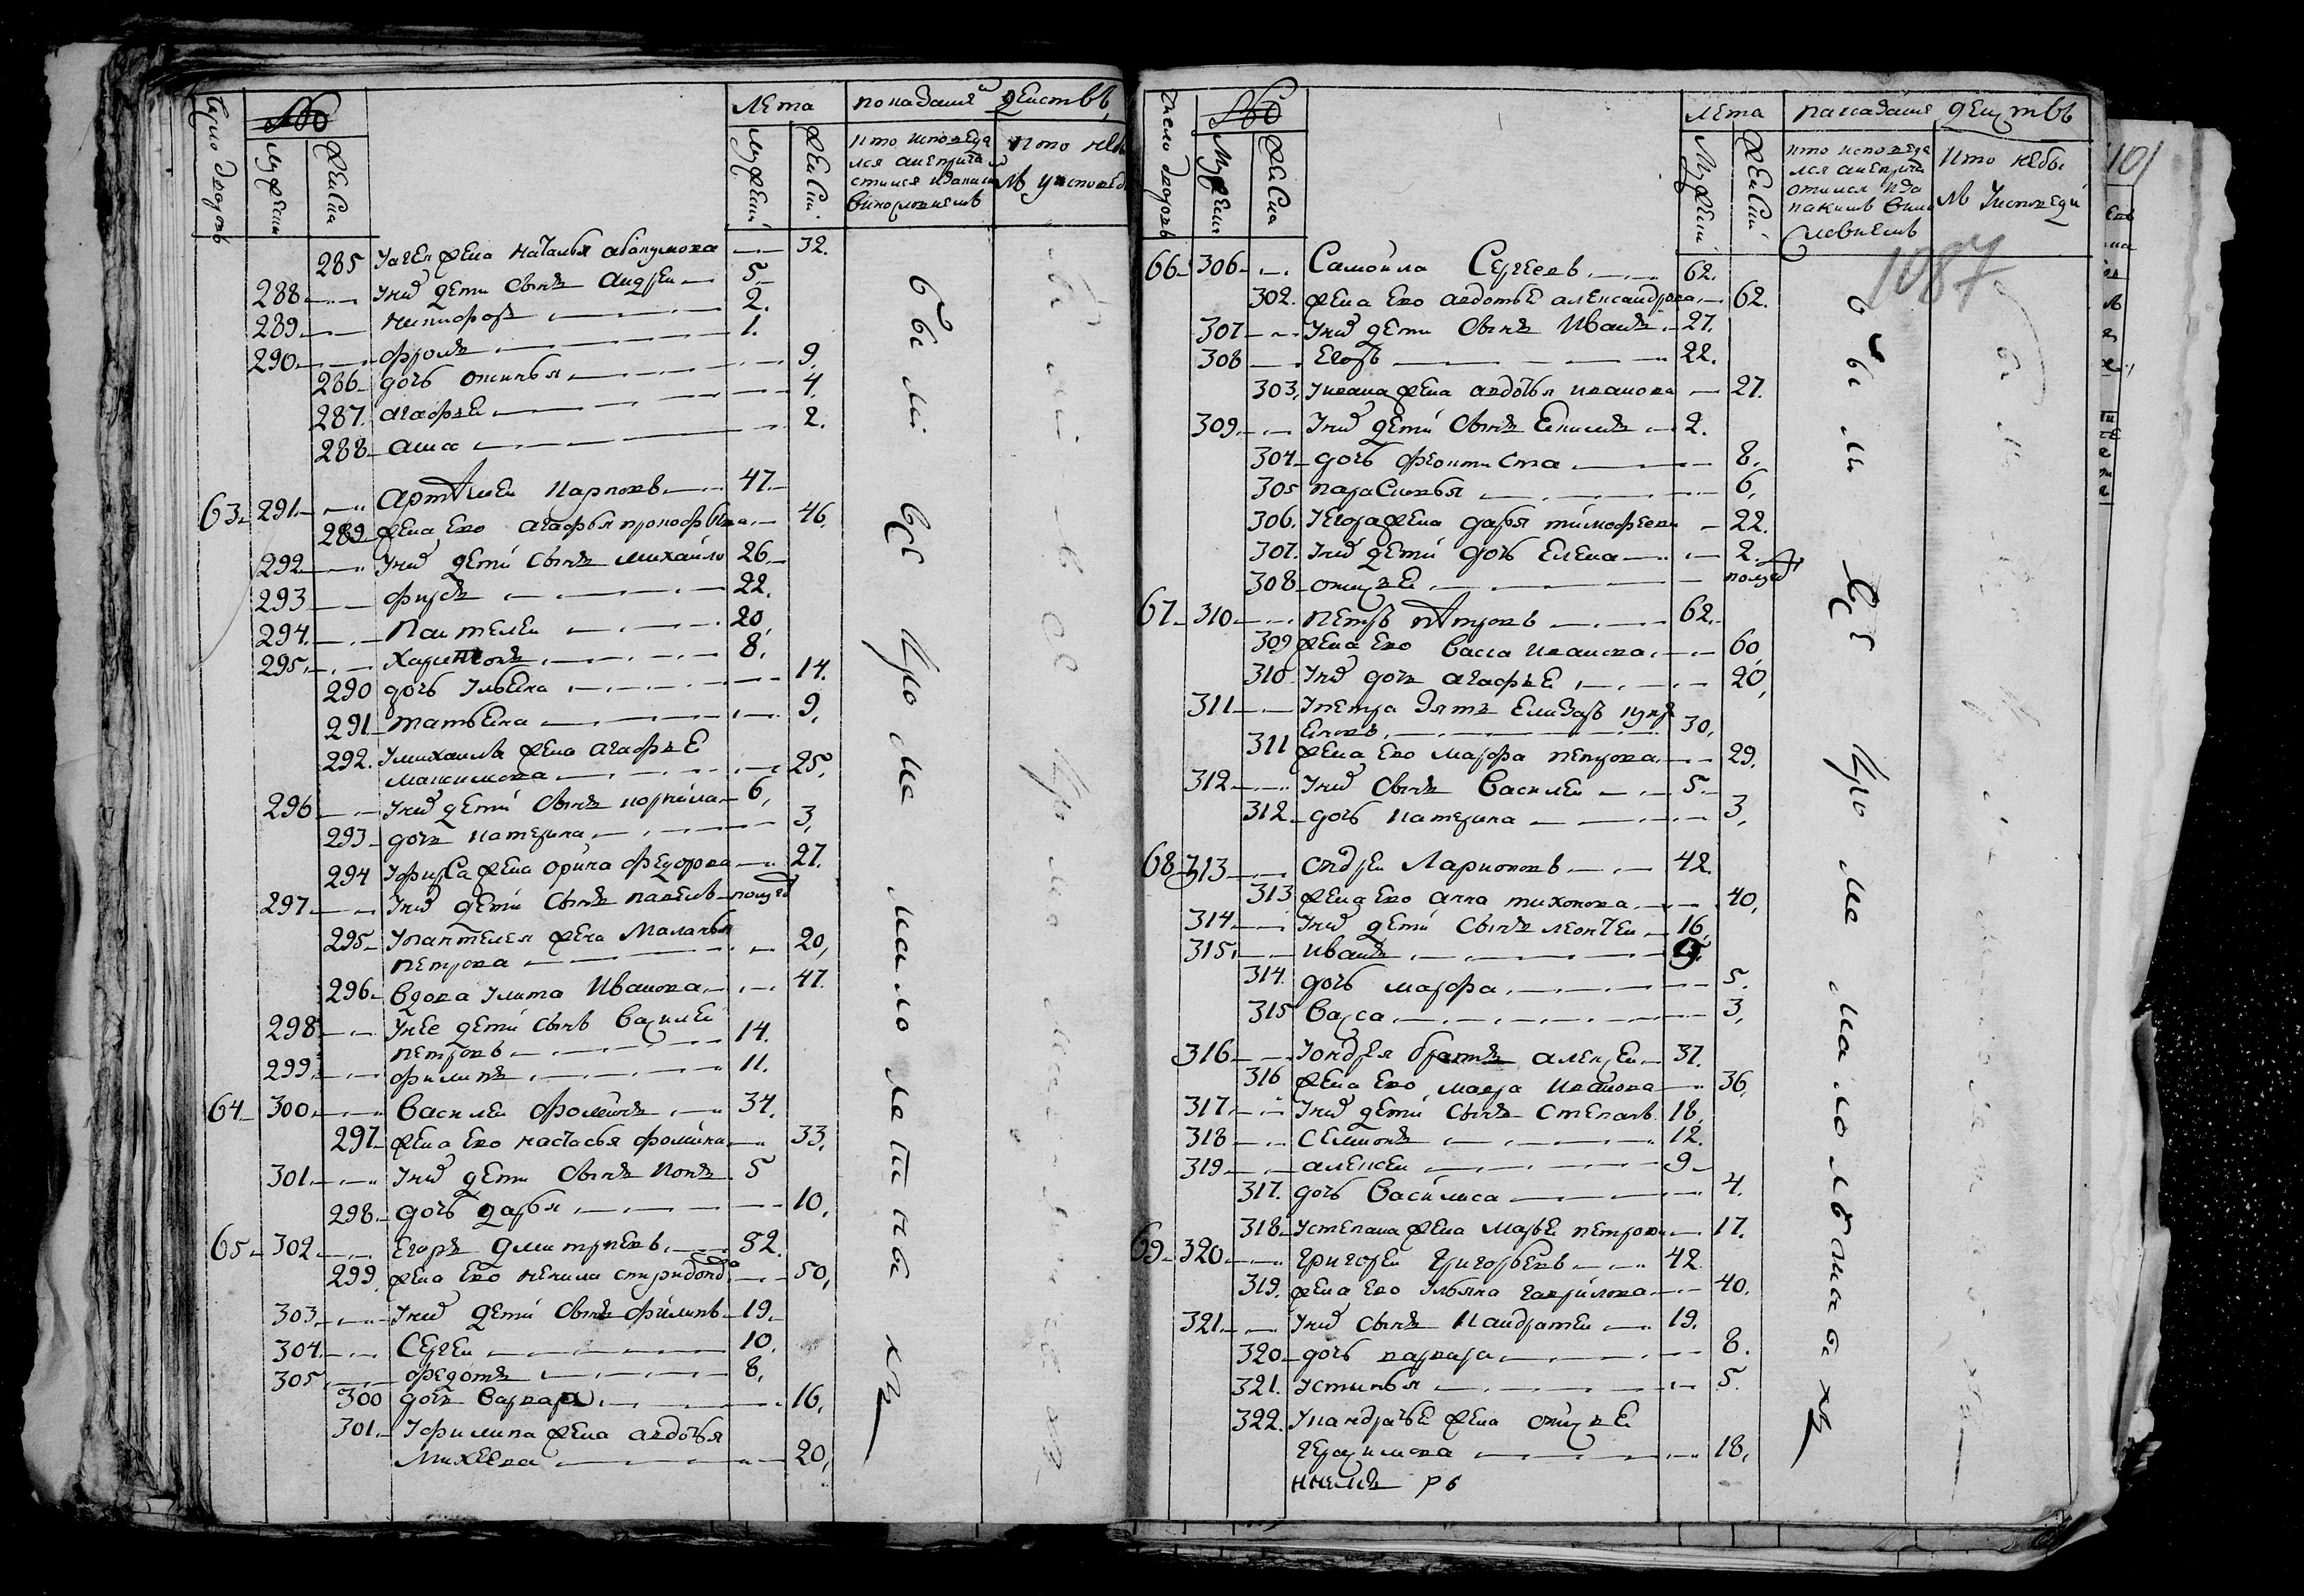 число дворовъ
№
мужеска
женска
лета
мужескъ
женскъ
показание действъ
кто исповеда
лся
кто небы
лъ у исповед
285 женa наталья 32.
288 у них дети сынъ андреи 5
289 никифоръ 2.
290 фролъ 1.
286 дочь 9.
287. агафьи 4.
288 анна 2.
63 291 артемеи карповъ 47.
289 жена ево агафья прокофьева 46.
292 у них дети сынъ михаило 26
293 фирсъ 22.
294. пантелеи 20
295 харитонъ 8.
290 дочь ульяна 14.
291 татьяна 9.
292. у михаила жена агафье
максимова 25.
296 у них дети сынъ корнила 6.
293 дочь катерина 3.
294 у фирса жена орина федорова 27.
297 у них дети сынъ павелъ полугод
295 у пантелея жена маланья
петрова 20.
296 вдова улита иванова 47.
298 у нее дети сынъ василеи
петровъ 14.
299 филипъ 11.
64 300 василеи фоминъ 34.
297 жена ево настасья фомина 33.
301 у них дети сынъ 5
298 дочь дарья 10.
65 302 егоръ дмитриевъ 52.
299 жена ево ненила спиридонова 50.
303 у них дети сынъ филипъ 19
304 сергеи 10.
305 федотъ 8.
300 дочь варвара 16.
301 у филипа жена авдотья
михеева 20.
были все кроме малолетныхъ
число дворовъ
№
мужеска
женска
лета
мужескъ
женскъ
показание действъ
кто исповеда
лся
кто небы
лъ у исповеди
1087
66 306 самоила сергеевъ 62.
302. жена ево авдотье александрова 62.
307 у них дети сынъ иванъ 27.
308 егоръ 22.
303. у ивана жена авдотья иванова 27.
309 у них дети сынъ 2.
304 дочь феоктиста 8.
305 парасковья 6.
306. у егора жена дарья тимофеева 22.
307. у них дети дочь елена 2.
308 полугод
67 310 петръ петровъ 62.
309 жена ево васса иванова 60
310 у них дочь агафье 20.
311 у петра зять елизаръ
30.
311 жена ево марфа петрова 29.
312 у них сынъ василеи 5
312 дочь катерина 3.
68 313 андреи ларионовъ 42.
313 жена ево анна тихонова 40.
314 у них дети сынъ леонтеи 16
315 иванъ 9.
314. дочь марфа 5.
315 васса 3.
316 у андрея братъ алексеи 37.
316 жена ево мавра иванова 36.
317 у них дети сынъ степанъ 18.
318 семионъ 12.
319 алексеи 9
317. дочь василиса 4.
318 у степана жена марье петрова 17.
69 320 григореи григорьевъ 42.
319. жена ево ульяна гаврилова 40.
321 у них сынъ кандратеи 19.
320 дочь варвара 8.
321. устинья 5.
322. у кандратье жена
герасимова 18.
были все кроме малолетныхъ
101